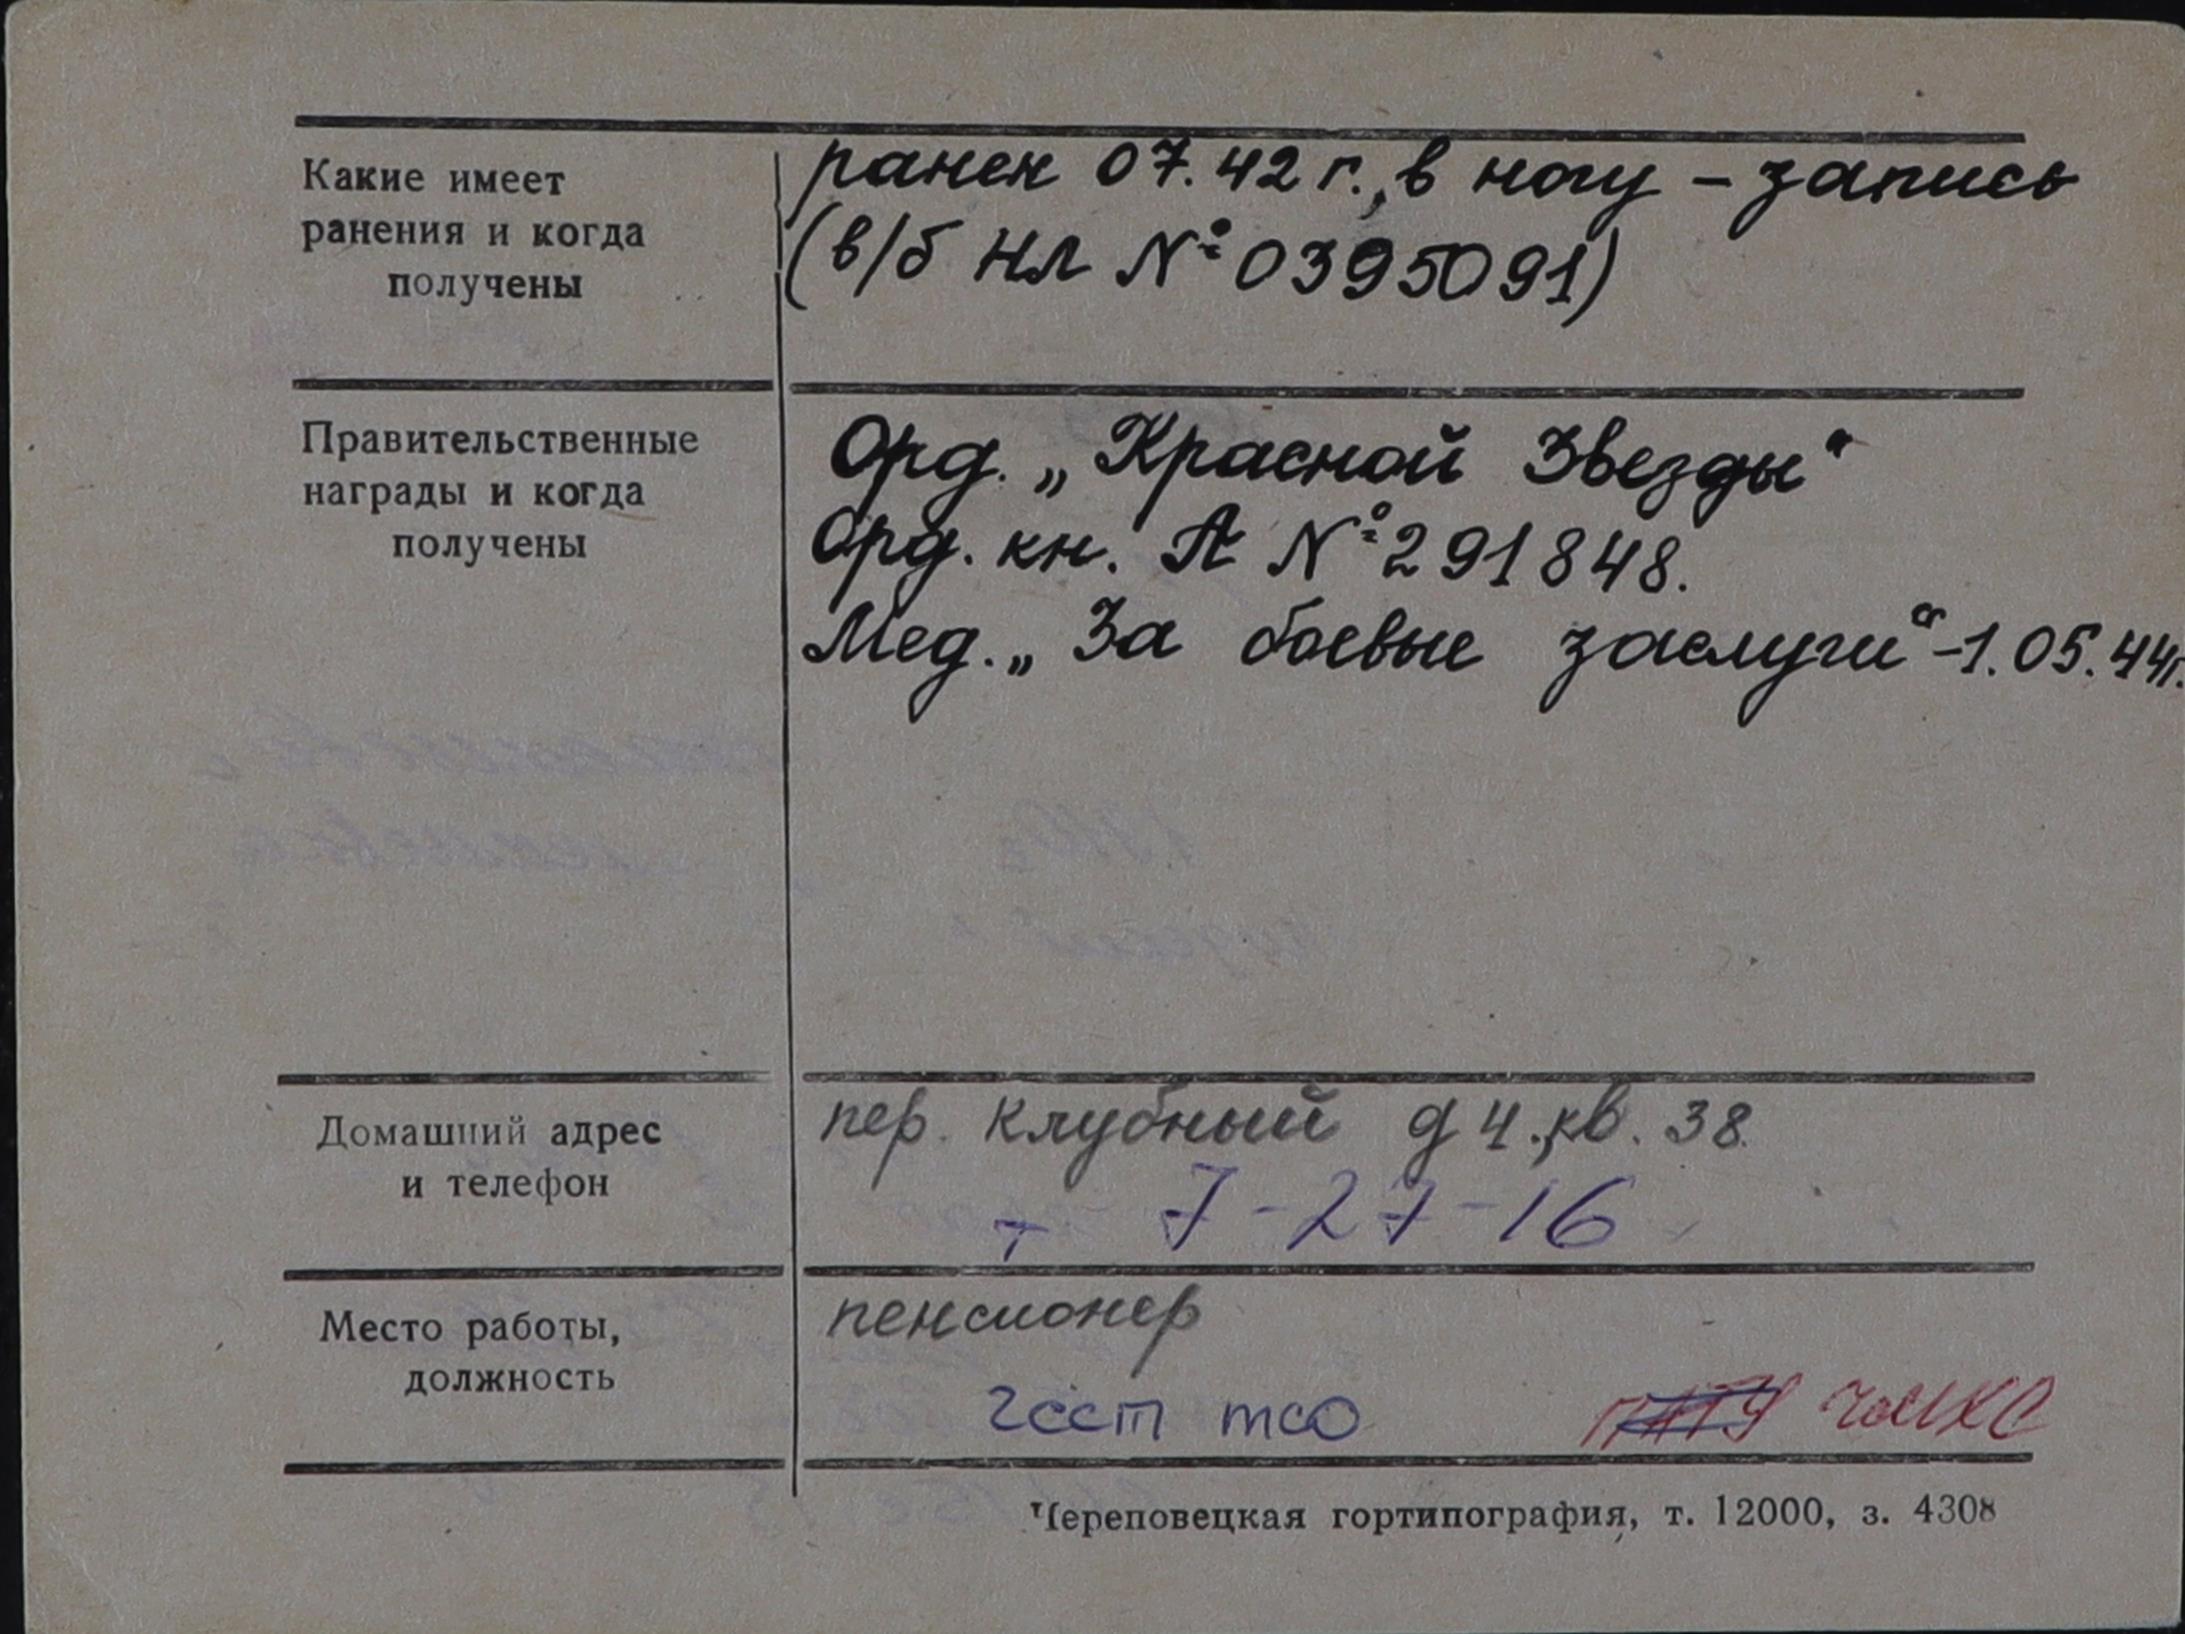 Какие имеет
ранения и когда
получены
ранен 07.42 г., в ногу – запись
(в/б НЛ № 0395091)
Правительственные
награды и когда
получены
Орд. „Красной Звезды“
Орд. кн. А № 291848.
Мед. „За боевые заслуги“ – 1.05.44г.
Домашний адрес
и телефон
пер. Клубный д 4., кв. 38.
т 7-27-16
Место работы,
должность
пенсионер
2ССТ ТСО
Череповецкая гортипография, т. 12000, з. 4308